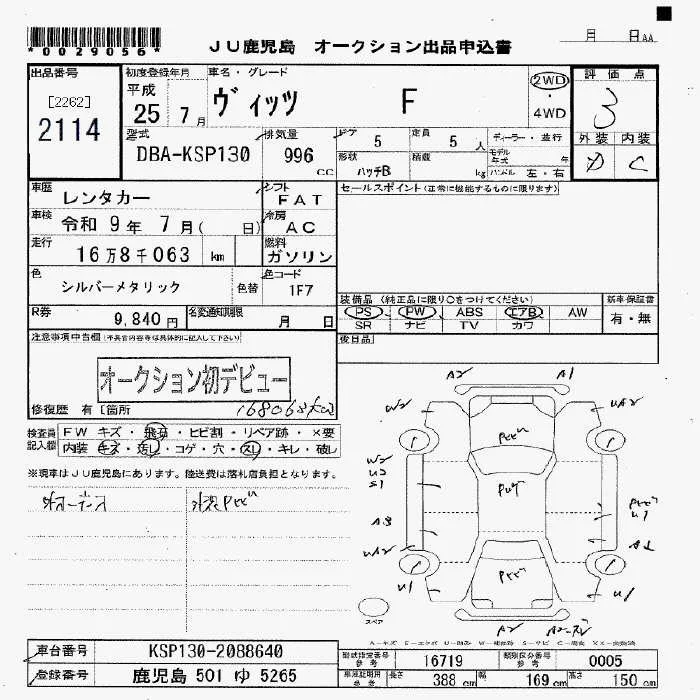 *0029056*
JU鹿児島 オークション出品申込書
月 日AA
出品番号 初度登録年月 車名・グレード 評価点
[2262]
2114
平成
25 7月
ヴィッツ F
2WD
・
4WD
3
外装 内装
D C
型式 DBA-KSP130
排気量 996 CC
ドア 5
定員 5人
ディーラー・並行
形状 ハッチB
積載 kg
モデル年式 年
ハンドル 左・右
車歴 レンタカー
シフト FAT
セールスポイント(正常に機能するものに限ります)
車検 令和 9年 7月( 日)
冷房 AC
走行 16万8千063 km
燃料 ガソリン
色 シルバーメタリック 色替
色コード 1F7
装備品(純正品に限り○をつけてください)
新車保証書
R券 9,840円
名変通知期限 月 日
PS PW ABS エアB AW
SR ナビ TV カワ
有・無
注意事項申告欄(不具合内容等は具体的に記入して下さい)
後日品
オークション初デビュー
修復歴 有 [箇所
168063km
検査員記入欄
FW キズ・飛石・ヒビ割・リペア跡・×要
内装 キズ・汚し・コゲ・穴・スレ・キレ・破レ
※現車はJU鹿児島にあります。陸送費は落札店負担となります。
A2 A1
W2 UA2
W2
U2
S1
A3
UA2
U1
U1
A2
U1
A2
スペア
車台番号 KSP130-2088640
登録番号 鹿児島 501 ゆ 5265
型式指定番号 参考 16719
類別区分番号 参考 0005
長さ 388 cm 幅 169 cm 高さ 150 cm